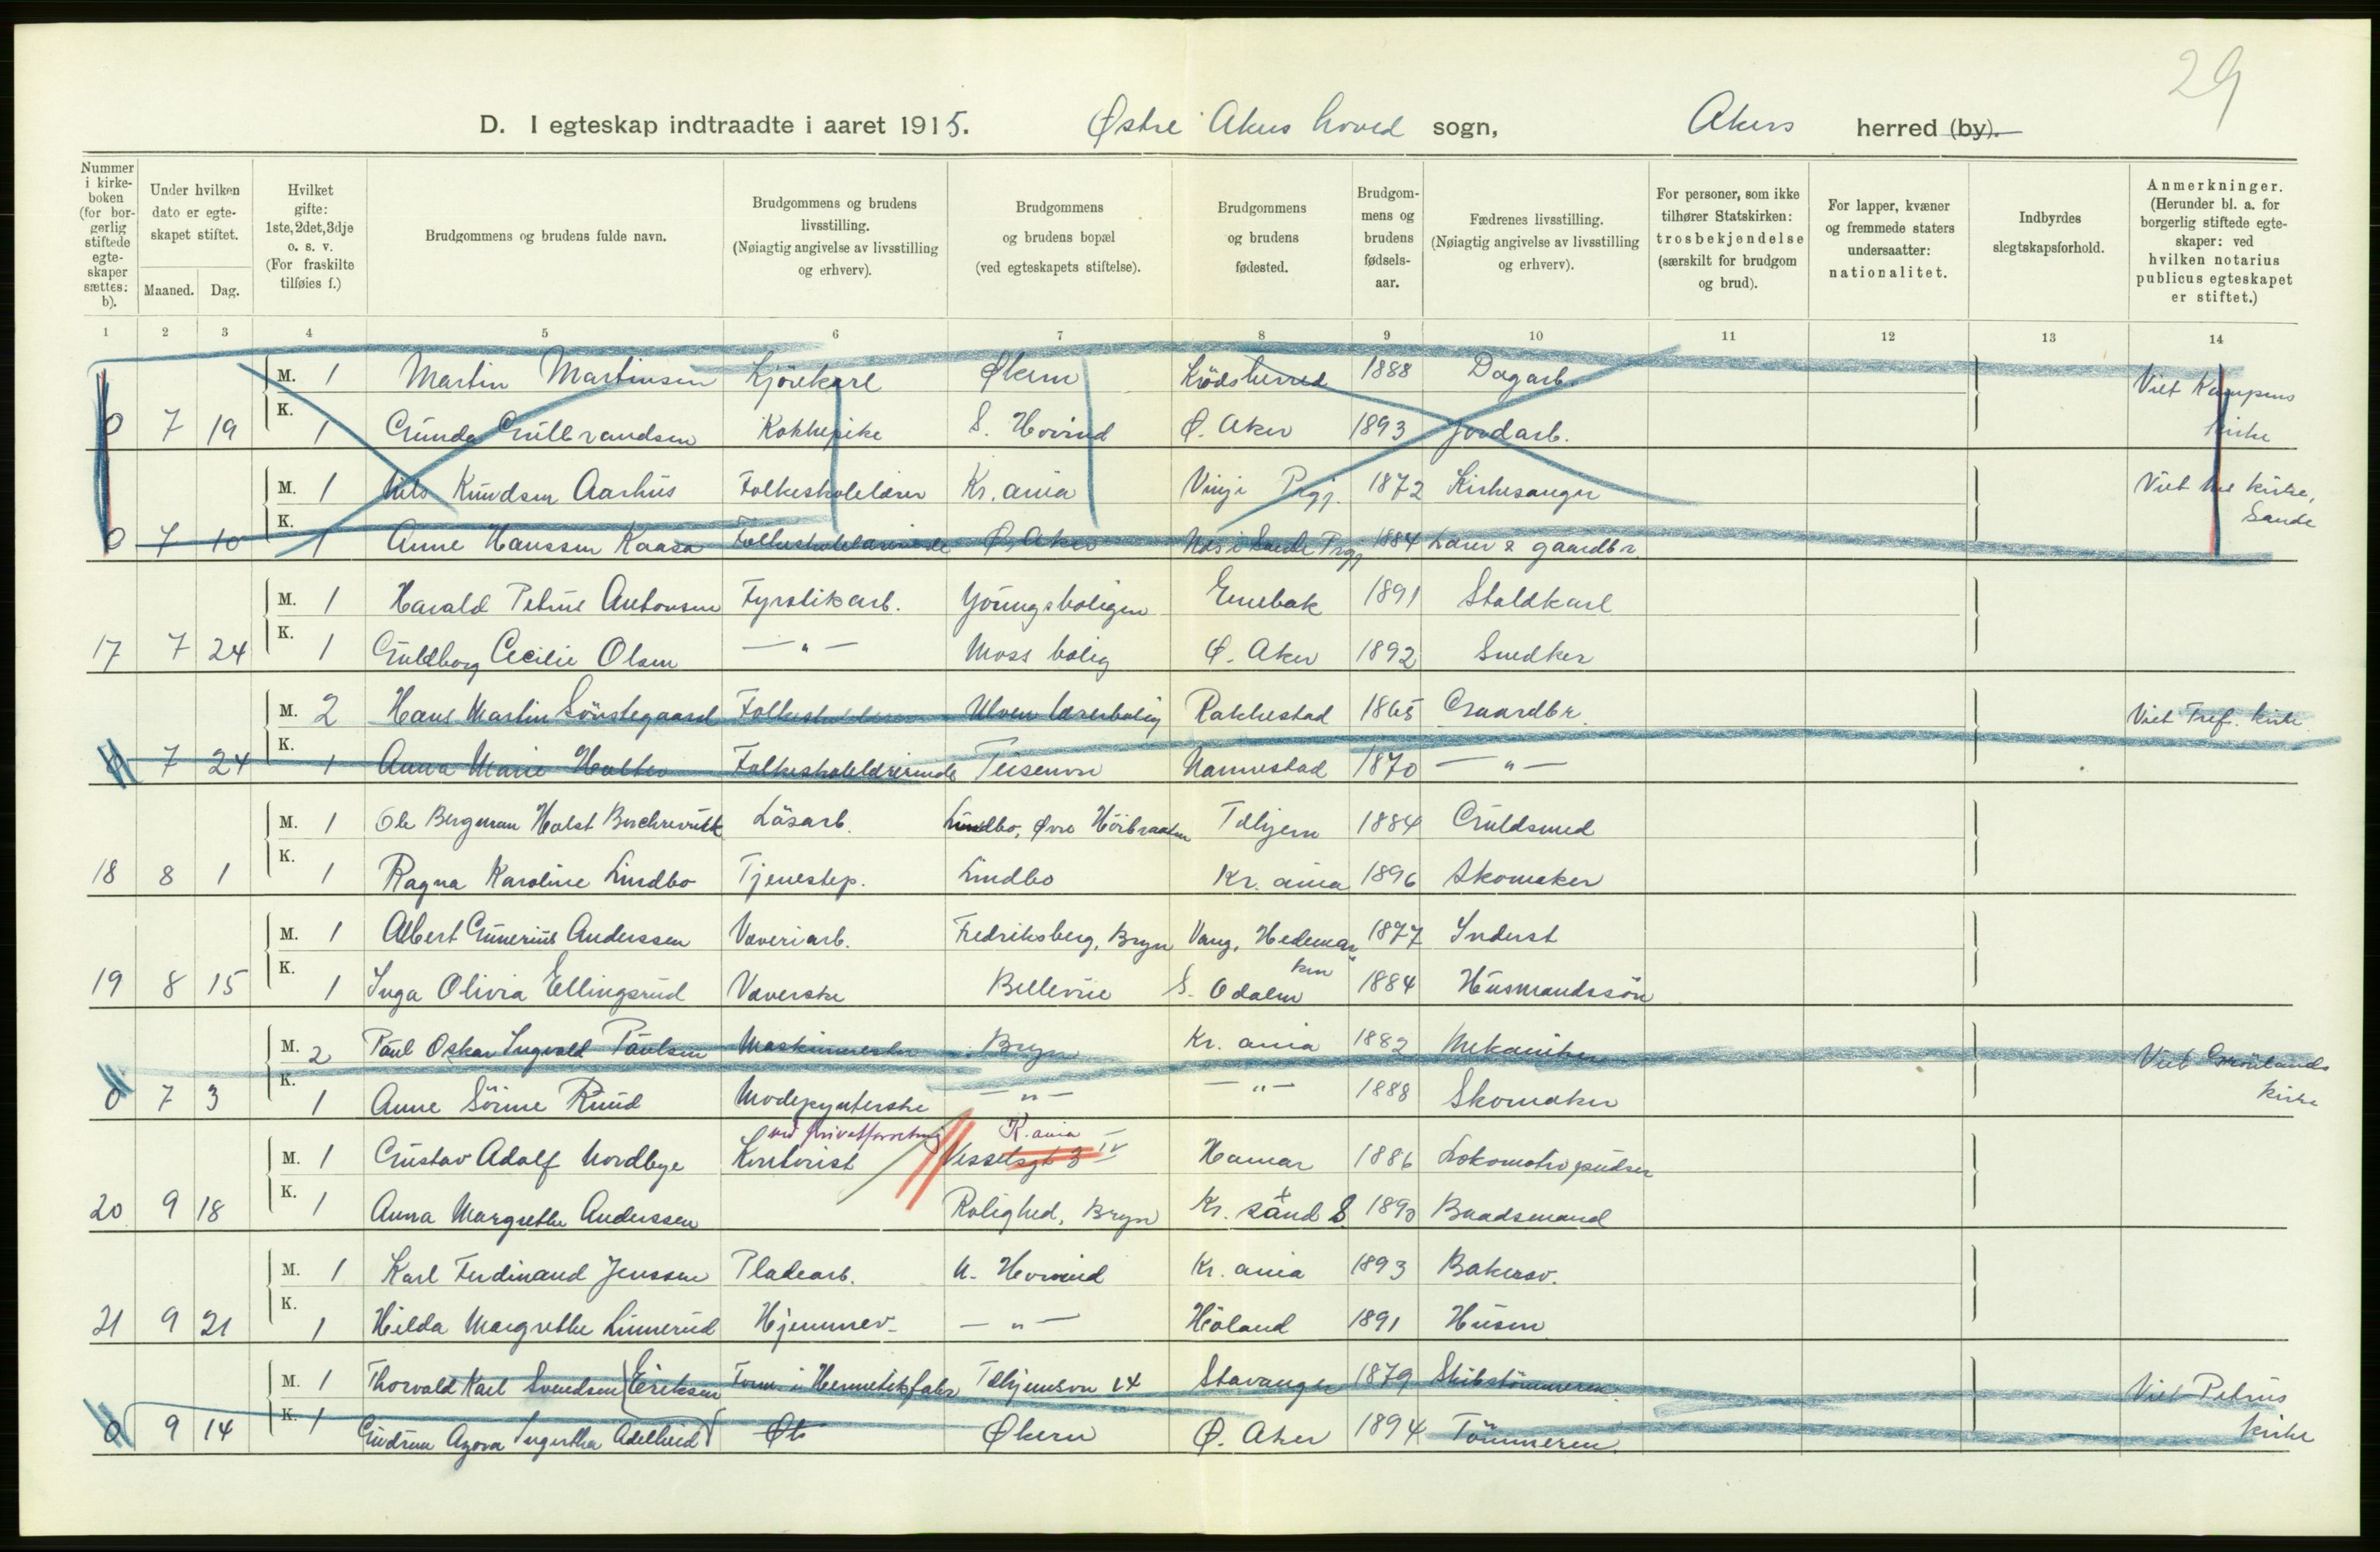 29
D. I egteskap indtraadte i aaret 1915. Østre Akers hoved sogn, Akers herred (by).
Nummer i kirkeboken (for borgerlig stiftede egteskaper sættes: b).
Under hvilken dato er egteskapet stiftet.
Maaned. Dag.
Hvilket gifte: 1ste, 2det, 3dje o. s. v. (For fraskilte tilføies f.)
Brudgommens og brudens fulde navn.
Brudgommens og brudens livsstilling. (Nøiagtig angivelse av livsstilling og erhverv).
Brudgommens og brudens bopæl (ved egteskapets stiftelse).
Brudgommens og brudens fødested.
Brudgommens og brudens fødselsaar.
Fædrenes livsstilling. (Nøiagtig angivelse av livsstilling og erhverv).
For personer, som ikke tilhører Statskirken: trosbekjendelse (særskilt for brudgom og brud).
For lapper, kvæner og fremmede staters undersaatter: nationalitet.
Indbyrdes slegtskapsforhold.
Anmerkninger. (Herunder bl. a. for borgerlig stiftede egteskaper: ved hvilken notarius publicus egteskapet er stiftet.)
1 2 3 4 5 6 7 8 9 10 11 12 13 14
M. 1 Martin Martinsen Kjörekarl Økern Krödsherred 1888 Dagarb. Viet Kampens
0 7 19 K. 1 Gunda Gulbrandsen Kokkepike S. Hovind Ø. Aker 1893 Jordarb. kirke
M. 1 Nils Knudsen Aarhus Folkeskolelærer Kr.ania Vinje Prgj. 1872 Kirkesanger Viet Nes kirke,
0 7 10 K. 1 Anne Hanssen Kaasa Folkeskolelærerinde Ø. Aker Nes i Sande Prgj 1884 Lærer & gaardbr. Sande
M. 1 Harald Petrus Antonsen Fyrstikarb. Youngsboligen Enebak 1891 Staldkarl
17 7 24 K. 1 Guldborg Cecilie Olsen — " — Moss bolig Ø. Aker 1892 Snedker
M. 2 Hans Martin Sönstegaard Folkeskolelærer Ulven lærerbolig Rakkestad 1865 Gaardbr. Viet Tref. kirke
0 7 24 K. 1 Anna Marie Holter Folkeskolelærerinde Teisenvn Nannestad 1870 — " —
M. 1 Ole Bergman Holst Borchrevink Läsarb. Lindbo, Øvre Höibraaten Telhjem 1884 Guldsmed
18 8 1 K. 1 Ragna Karoline Lindbo Tjenestep. Lindbo Kr.ania 1896 Skomaker
M. 1 Albert Gunerius Anderssen Væveriarb. Fredriksberg, Bryn Vang, Hedemarken 1877 Inderst
19 8 15 K. 1 Inga Olivia Ellingsrud Væverske Bellevue S. Odalen 1884 Husmandssön
M. 2 Paul Oskar Ingvald Paulsen Maskinmester Bryn Kr.ania 1882 Mekaniker Viet Grönlands
0 7 3 K. 1 Anne Sörine Ruud Modepynterske — " — — " — 1888 Skomaker kirke
ved privatforretning K.ania
M. 1 Gustav Adolf Nordbye Kontorist Vesselsgt 3 IV Hamar 1886 Lokomotivpudser
20 9 18 K. 1 Anna Margrethe Anderssen Rolighed, Bryn Kr.sand S. 1890 Baadsmand
M. 1 Karl Ferdinand Jenssen Pladearb. N. Hovind Kr.ania 1893 Bakersv.
21 9 21 K. 1 Hilda Margrethe Linnerud Hjemmev. — " — Höland 1891 Husm.
M. 1 Thorvald Karl Svendsen Eriksen Form. i Hermetikfabr Telhjemsvn 14 Stavanger 1879 Skibstömmerm. Viet Petrus
0 9 14 K. 1 Gudrun Agora Ingertha Adelheid Øk Økern Ø. Aker 1894 Tömmerm. kirke